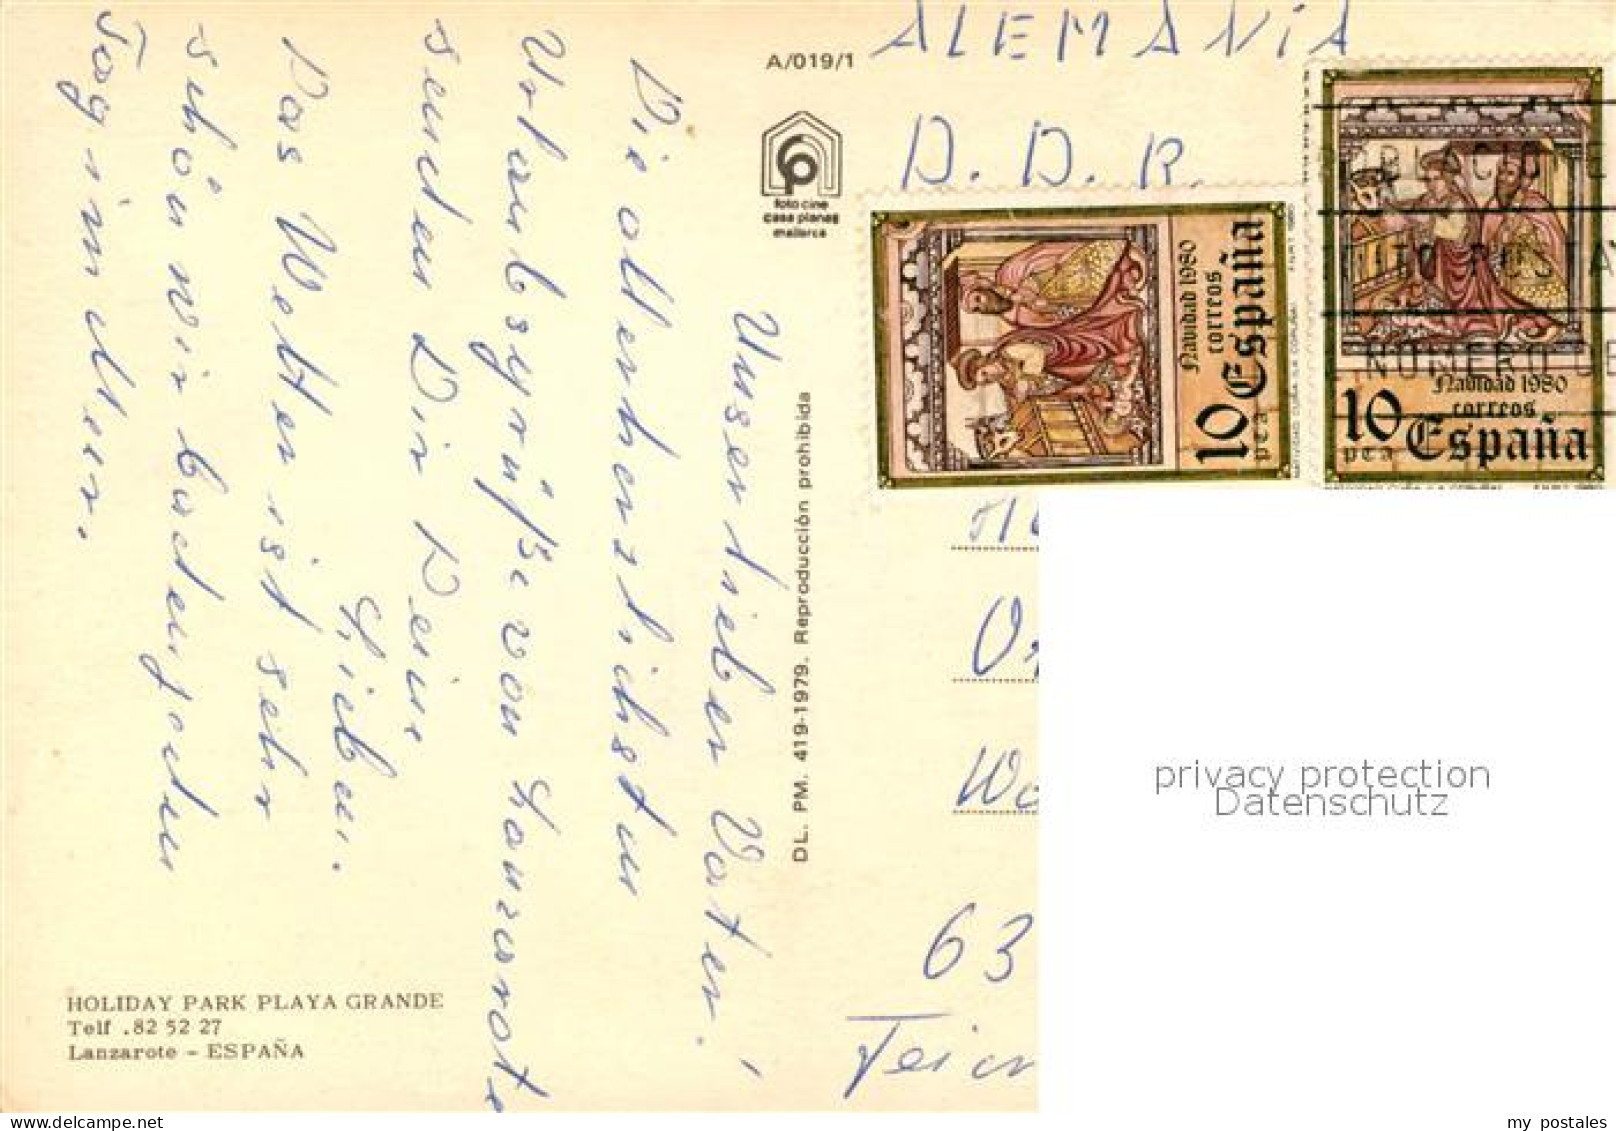 Unser lieber Vater!
Die allerherzlichsten
Urlaubsgrüße von Lanzarote
senden Dir Deine
Lieben.
Das Wetter ist sehr
schön wir baden jeden
Tag im Meer.
HOLIDAY PARK PLAYA GRANDE
Telf .82 52 27
Lanzarote - ESPAÑA
A/019/1
foto cine
casa planas
mallorca
DL. PM. 419-1979. Reproducción prohibida
ALEMANIA
D. D. R.
Navidad 1980
correos
10 España
pta
Navidad 1980
correos
10 España
pta
NUMERO
63
privacy protection
Datenschutz
my_postales
www.delcampe.net